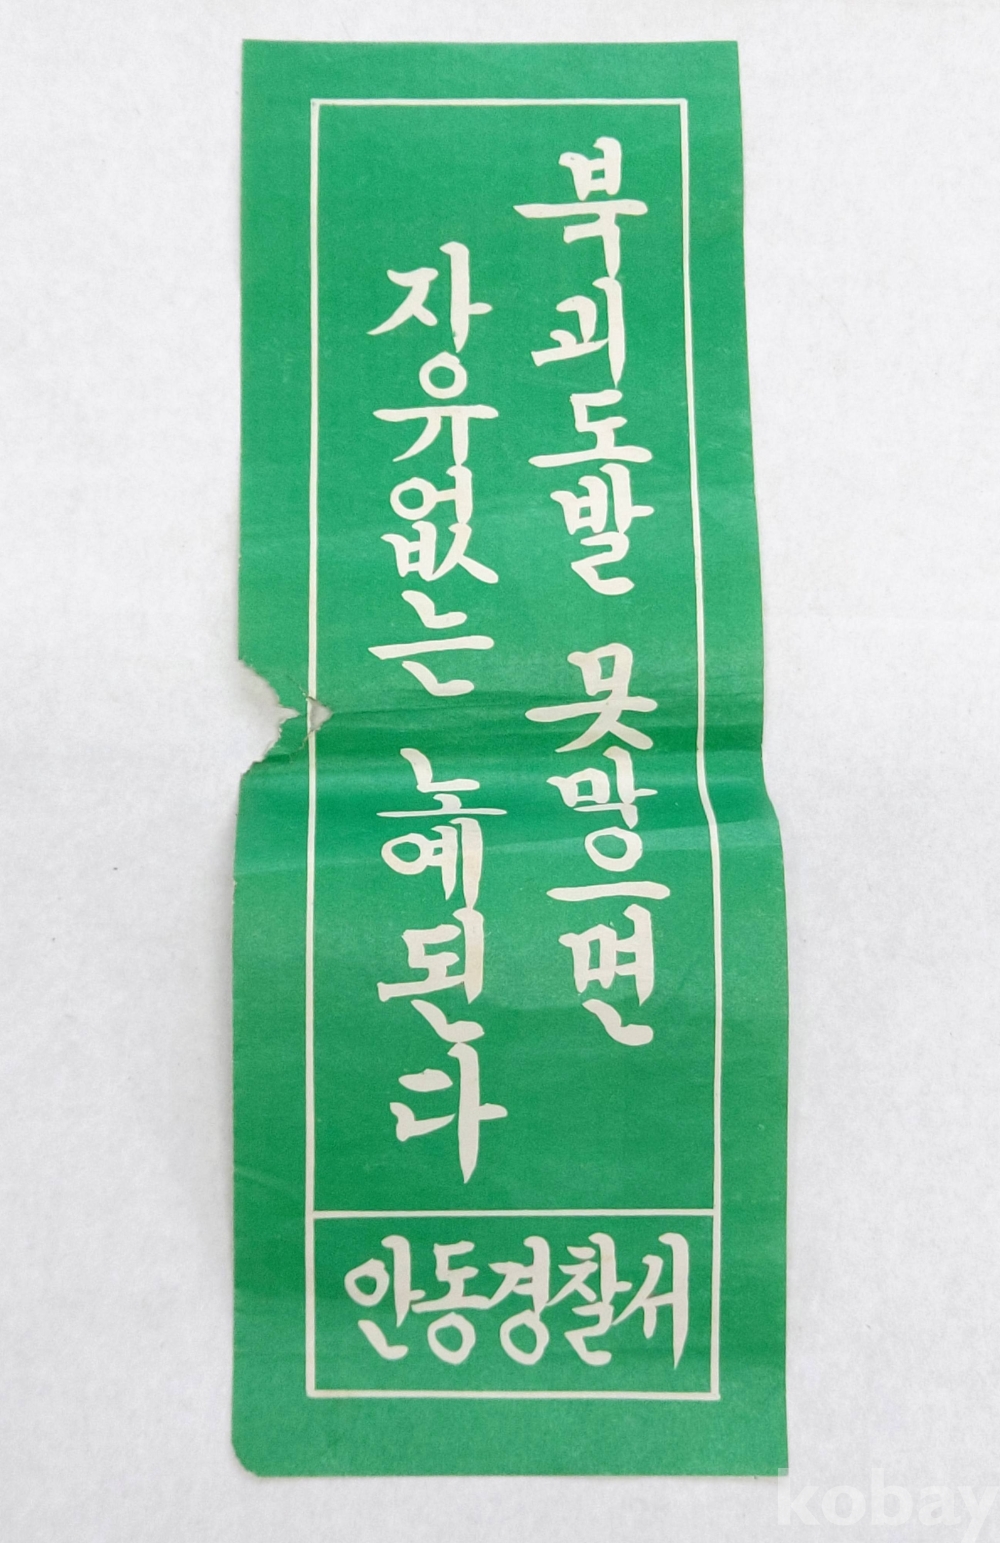 북괴도발 못막으면
자유없는 노예된다
안동경찰서
kobay